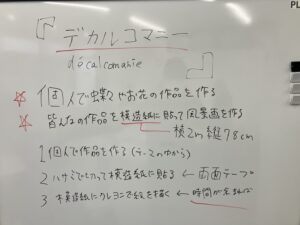 『デカルコマニー
décalcomanie 』
☆ 個人で蝶々やお花の作品を作る
☆ 皆んなの作品を模造紙に貼って風景画を作る
横2m 縦78cm
1 個人で作品を作る(テーマの中から)
2 ハサミで切って模造紙に貼る ← 両面テープ
3 模造紙にクレヨンで絵を描く ← 時間が余れば
PL